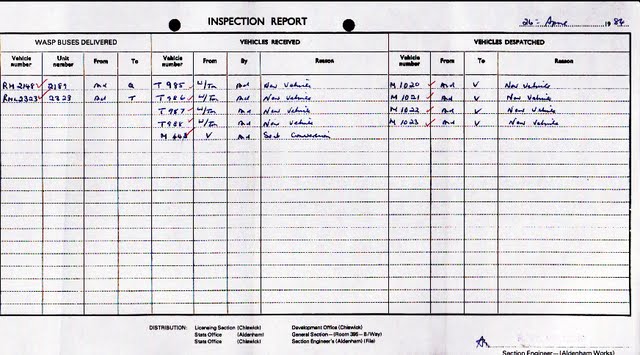 INSPECTION REPORT
26 April 1984
WASP BUSES DELIVERED VEHICLES RECEIVED VEHICLES DESPATCHED
Vehicle number Unit number From To Vehicle number From By Reason Vehicle number From To Reason
RM2148 2189 Ad Q T985 W/Tn Ad New Vehicle M1020 Ad V New Vehicle
2323 2328 Ad T T986 W/Tn Ad New Vehicle M1021 Ad V New Vehicle
T987 W/Tn Ad New Vehicle M1022 Ad V New Vehicle
T988 W/Tn Ad New Vehicle M1023 Ad V New Vehicle
M 648 V Ad Seat Conversion
DISTRIBUTION: Licensing Section (Chiswick) Development Office (Chiswick)
Stats Office (Aldenham) General Section – (Room 395 – B/Way)
Stats Office (Chiswick) Section Engineer's (Aldenham) (File)
Section Engineer – (Aldenham Works)